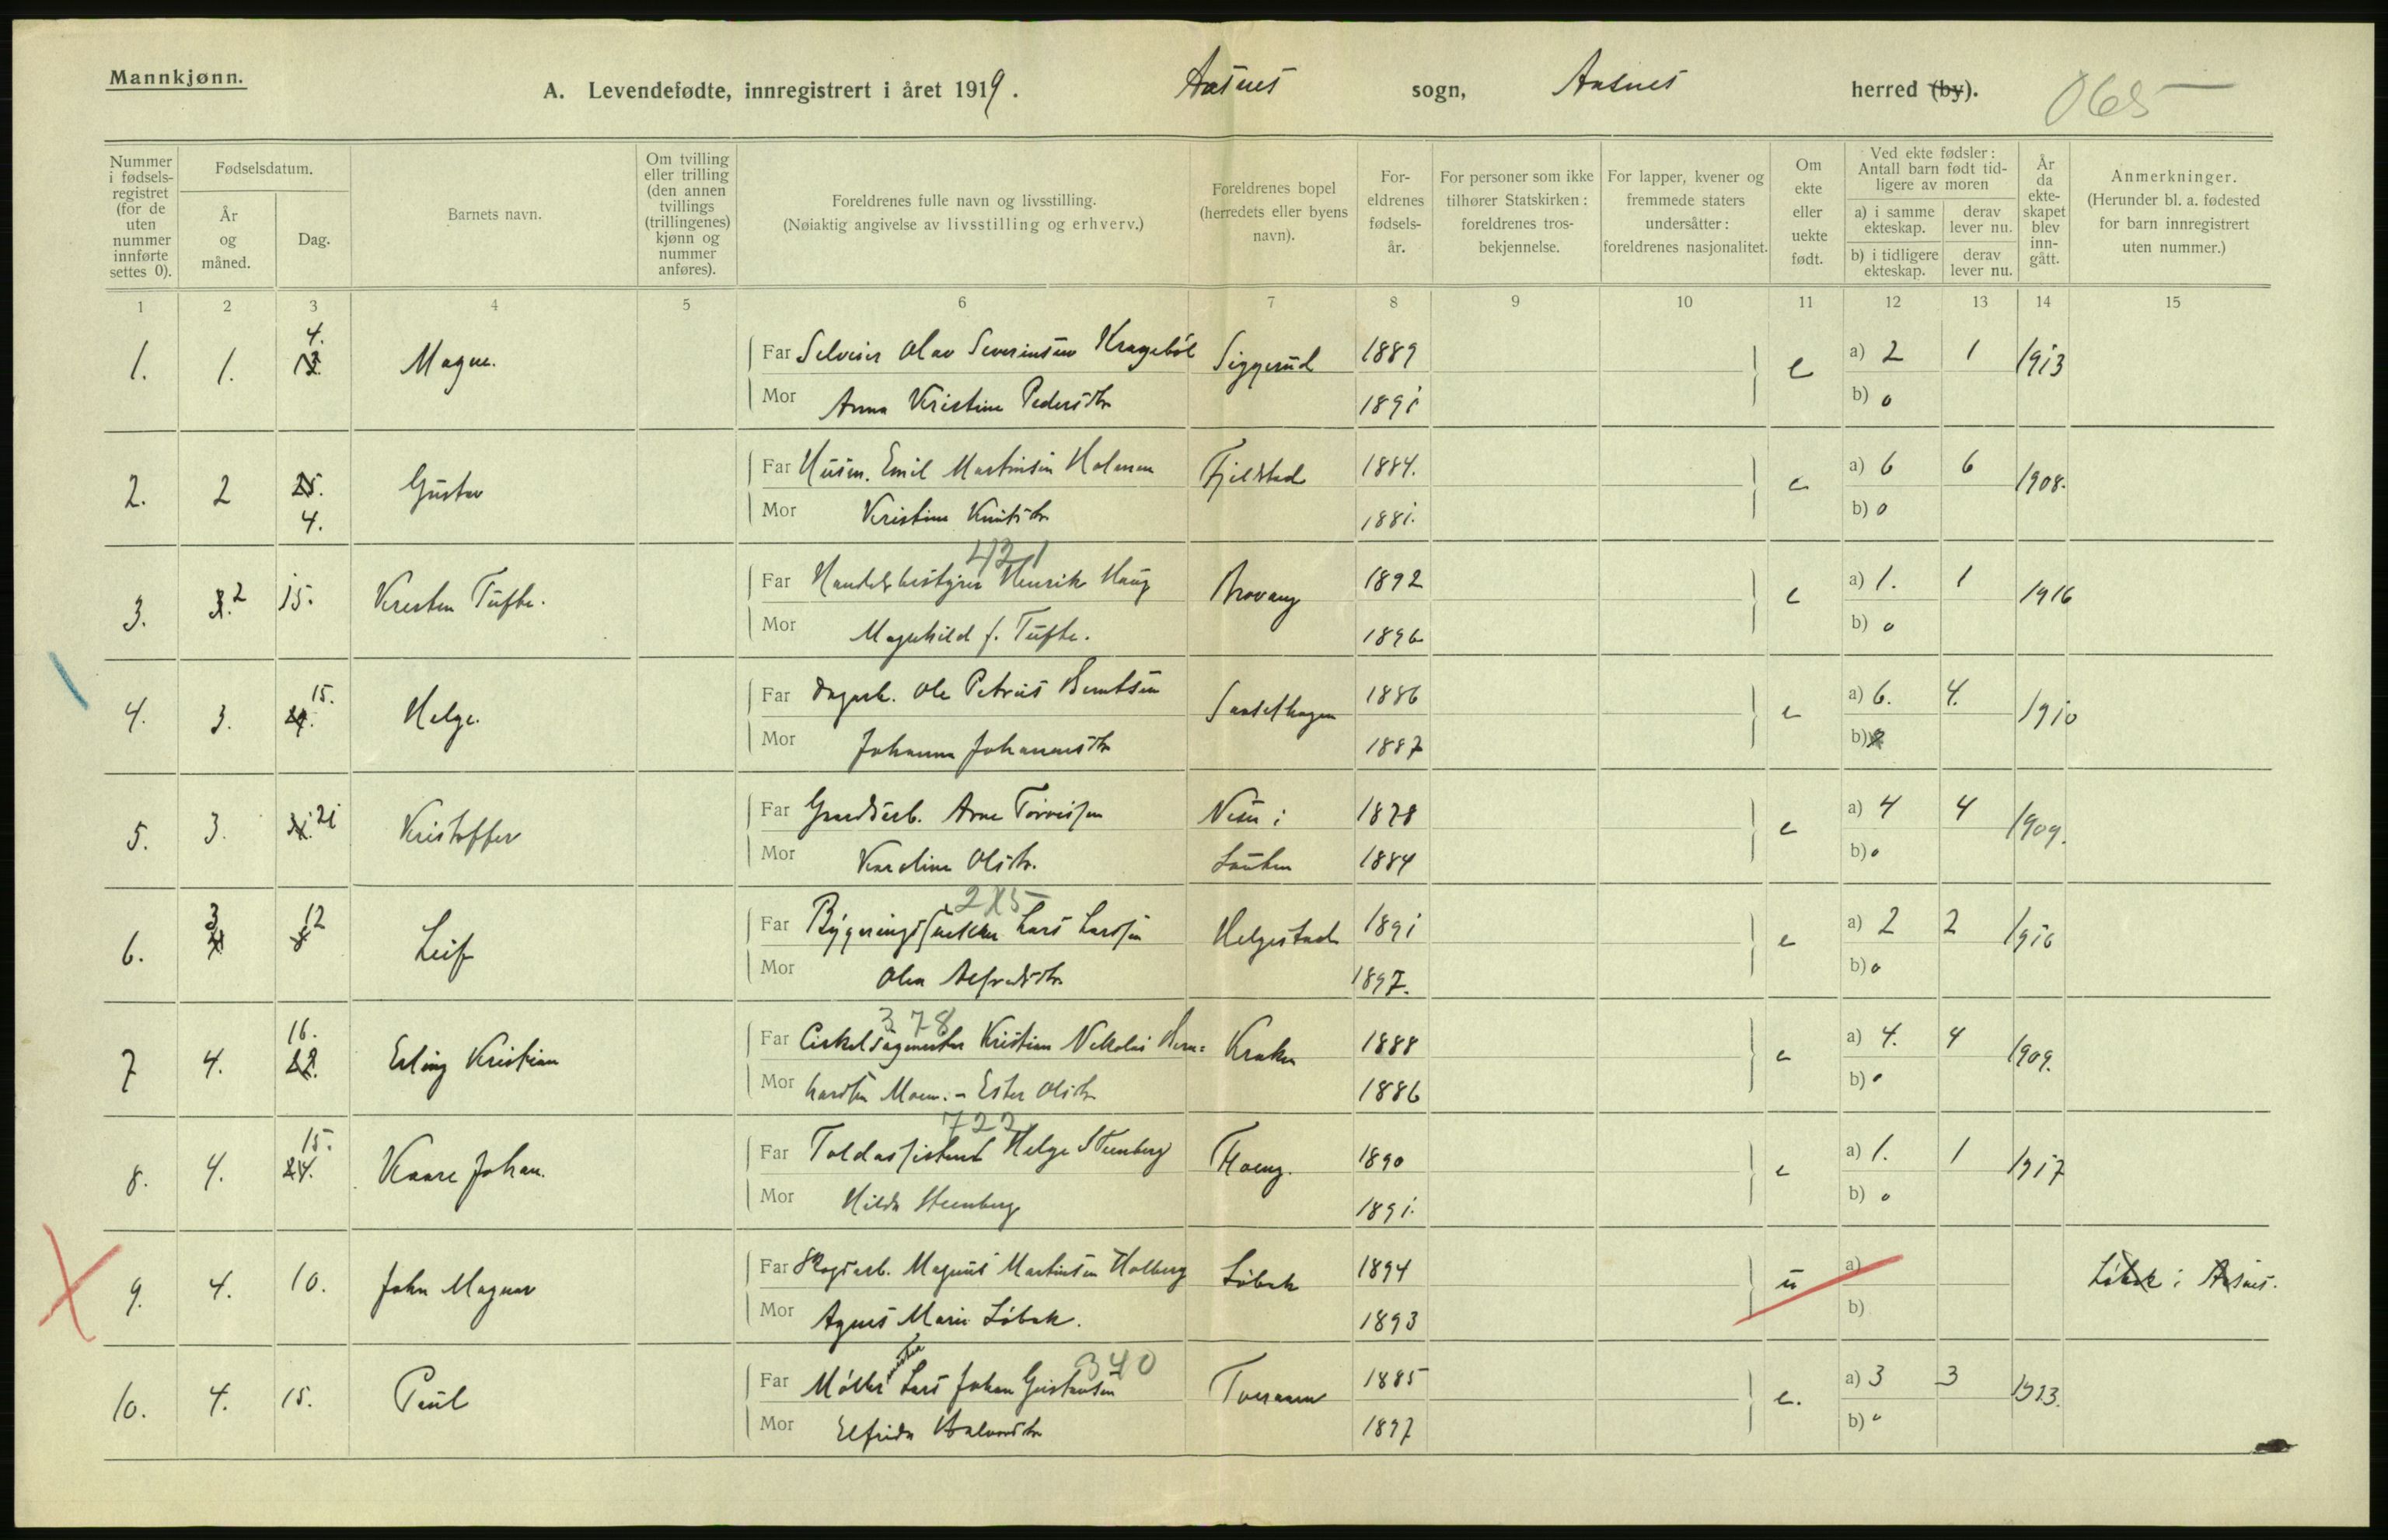 Mannkjønn.
A. Levendefødte, innregistrert i året 1919. Aasnes sogn, Aasnes herred (by). 065
Nummer i fødselsregistret (for de uten nummer innførte settes 0).
Fødselsdatum.
År og måned.
Dag.
Barnets navn.
Om tvilling eller trilling (den annen tvillings (trillingenes) kjønn og nummer anføres).
Foreldrenes fulle navn og livsstilling.
(Nøiaktig angivelse av livsstilling og erhverv.)
Foreldrenes bopel (herredets eller byens navn).
Foreldrenes fødselsår.
For personer som ikke tilhører Statskirken: foreldrenes trosbekjennelse.
For lapper, kvener og fremmede staters undersåtter: foreldrenes nasjonalitet.
Om ekte eller uekte født.
Ved ekte fødsler: Antall barn født tidligere av moren
a) i samme ekteskap. derav lever nu.
b) i tidligere ekteskap. derav lever nu.
År da ekteskapet blev inngått.
Anmerkninger.
(Herunder bl. a. fødested for barn innregistrert uten nummer.)
1 2 3 4 5 6 7 8 9 10 11 12 13 14 15
4.
1. 1. Magne. Far Selveier Olav Severinsen Kragebøl Siggerud 1889 e a) 2 1 1913
Mor Anna Kristine Pedersdtr 1891 b) 0
2. 2 25. Gustav Far Husm. Emil Martinsen Holmen Fjelstad 1884. e a) 6 6 1908.
4. Mor Kristine Knutsdtr 1881. b) 0
421
3. 3. 2 15. Kresten Tufte. Far Handelsbestyrer Henrik Haug 1892 e a) 1. 1 1916
Mor Magnhild f. Tufte. 1896 b) 0
15.
4. 3. Helge. Far Dagarb. Ole Petrus Berntsen 1886 e a) 6. 4. 1910
Mor Johanna Johannesdtr 1887 b)
5. 3. 21 Kristoffer Far Gaardsarb. Arne 1878 e a) 4 4 1909.
Mor Karoline Olsdtr. 1884 b) 0
3 12 215
6. Leif Far Bygningssnekker Lars Larssen Helgestad 1891 e a) 2 2 1916
Mor Olea Alfredsdtr 1897. b) 0
16. 378
7 4. 22. Erling Kristian Far Cirkelsagmester Kristian Nikolai Bern= Kraken 1888 e a) 4. 4 1909.
Mor hardsen Moen. - Ester Olsdtr 1886 b) 0
15. 722
8. 4. 24. Kaare Johan. Far Toldassistent Helge Steenberg 1890 e a) 1. 1 1917
Mor Hilda Steenberg 1891. b) 0
9. 4. 10. John Magnar Far Skogsarb. Magnus Martinsen Holberg Løbak 1894 u a) Løbak i Aasnes.
Mor Agnes Marie Løbak. 1893 b)
340
10. 4. 15. Paul Far Møller Lars Johan Gustavsen 1885 e. a) 3 3 1913.
Mor Elfrida Halvorsdtr 1897 b) 0